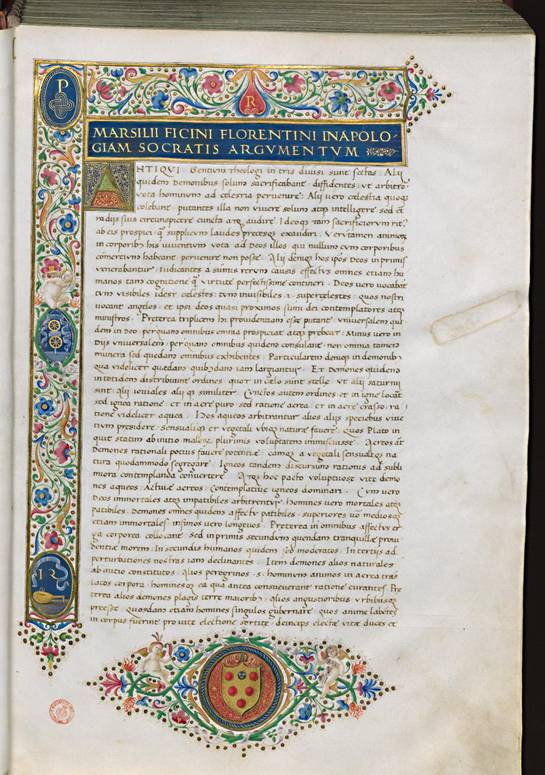 P
R
MARSILII FICINI FLORENTINI IN APOLO-
GIAM SOCRATIS ARGVMENTVM
ANTIQVI Gentium theologi in tris divisi sunt sectas. Alij
quidem demonibus solum sacrificabant diffidentes ut arbitror
vota hominum ad celestia pervenire. Alij vero celestia quoq
colebant putantes illa non vivere solum atq intelligere sed et
radijs suis circunspicere cuncta atq audire. Ideoq tam sacrificiorum ritꝰ
ab eis prospici q̃ supplicum laudes precesq exaudiri. Verumtamen animos
in corporibꝰ his viventium vota ad deos illos qui nullum cum corporibus
comertium habeant pervenire non posse. Alij deniq hos ipsos deos in primis
venerabantur iudicantes a sumis rerum causis effectus omnes etiam hu
manos tam cognitione q̃ virtute perfectissime contineri. Deos vero vocabāt
tum visibiles idest celestes: tum invisibiles i. supercelestes quos nostri
vocant angelos et ipsi deos quasi proximos sumi dei contemplatores atq
ministros. Preterea triplicem hi providentiam esse putant. Vniversalem qui
dem in deo per quam omnibus omnia prospiciat atq prebeat. Minus vero in
Dijs vniversalem per quam omnibus quidem consulant non omnia tamen
munera sed quedam omnibus exhibentes. Particularem deniq in demonibꝰ
qua videlicet quedam quibusdam iam largiantur. Et demones quidem
in totidem distribuunt ordines quot in celo sunt stelle ut alij saturnij
sint alij ioviales alij q̃ similiter. Cunctos autem ordines et in igne locāt
sed ignea ratione et in aere puro sed ratione aerea et in aere crasso ra
tione videlicet aquea. Hos aqueos arbitrantur alios alijs speciebus viuē
tium presidere sensualiq et vegetali vbiq nature favere. Quos Plato in
quit statim ab initio
plurimis voluptatem inmiscuisse. Aereos aūt
Demones rationali potius favere potentie eamq a vegetali sensualiq na
tura quodammodo segregare. Igneos tandem discursum rationis ad subli
miora contemplanda convertere. Atq hoc pacto voluptuose vite demo
nes aqueos Active aereos Contemplative igneos dominari. Cum vero
Deos immortales atq impatibiles arbitrentur. Homines vero mortales atq
patibiles. Demones omnes quidem affectu patibiles superiores
mediosq
etiam immortales infimos vero longevos. Preterea in omnibus affectus er
ga corporea collocant sed in primis secundum quendam tranquille provi
dentie morem. In secundis humanis quidem sed moderatos. In tertijs ad
perturbationes nostras iam declinantes. Item demones alios naturales
ab initio constitutos alios peregrinos .s. hominum animos in aerea trās
latos corpora hominesq ea qua antea consueverant ratione curantes. Pre
terea alios demones plagis terre maioribꝰ alios angustioribus vrbibusq
preesse quosdam etiam homines singulos gubernare quos anime labētes
in corpus fuerint pro vite electione sortite deinceps electe vite duces et